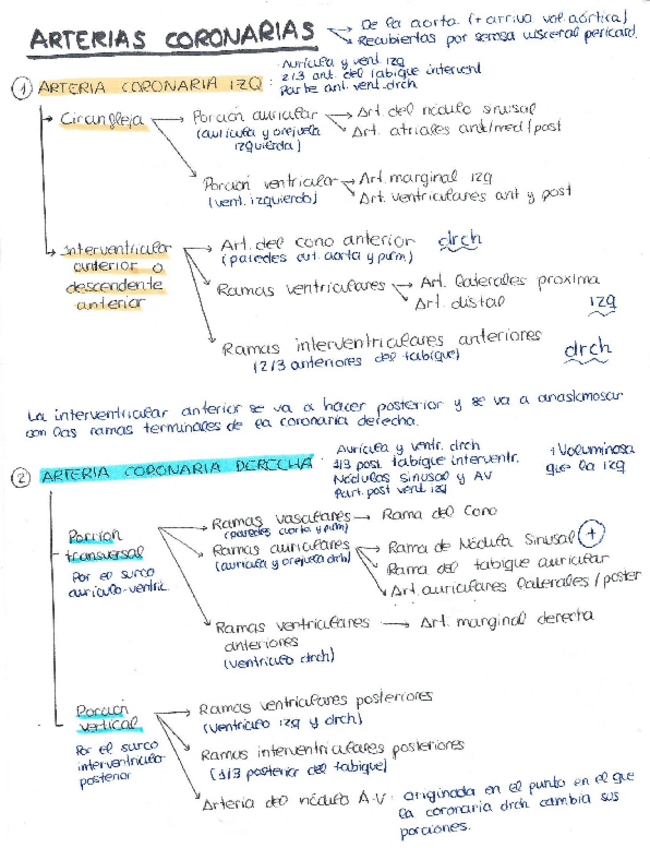 ARTERIAS CORONARIAS
→ De la aorta (+ arriva val. aórtica)
→ Recubiertas por serosa visceral pericard.
① ARTERIA CORONARIA IZQ :
· Aurícula y vent. izq
2/3 ant. del tabique intervent
Parte ant. vent. drch
→ Circunfleja
→ Porción auricular
(aurícula y orejuela
izquierda)
→ Art. del nódulo sinusal
→ Art. atriales ant/med/post
→ Porción ventricular
(vent. izquierdo)
→ Art. marginal izq
→ Art. ventriculares ant y post
→ Interventricular
anterior o
descendente
anterior
→ Art. del cono anterior drch
(paredes art. aorta y pulm)
→ Ramas ventriculares
→ Art. laterales proxima
→ Art. distal
izq
→ Ramas interventriculares anteriores
(2/3 anteriores del tabique)
drch
La interventricular anterior se va a hacer posterior y se va a anastomosar
con las ramas terminales de la coronaria derecha.
② ARTERIA CORONARIA DERECHA :
Aurícula y ventr. drch
1/3 post. tabique interventr.
Nódulos sinusal y AV
Part. post vent izq
+ Voluminosa
que la izq
Porción
transversal
Por el surco
aurículo-ventric.
→ Ramas vasculares → Rama del Cono
(paredes aorta y pulm)
→ Ramas auriculares
(aurícula y orejuela drch)
→ Rama de Nódulo Sinusal (+)
→ Rama del tabique auricular
→ Art. auriculares laterales/poster
→ Ramas ventriculares
anteriores
(ventrículo drch)
→ Art. marginal derecha
Porción
vertical
Por el surco
interventrículo-
posterior
→ Ramas ventriculares posteriores
(ventrículo izq y drch)
→ Ramas interventriculares posteriores
(1/3 posterior del tabique)
→ Arteria del nódulo A-V · originada en el punto en el que
la coronaria drch cambia sus
porciones.